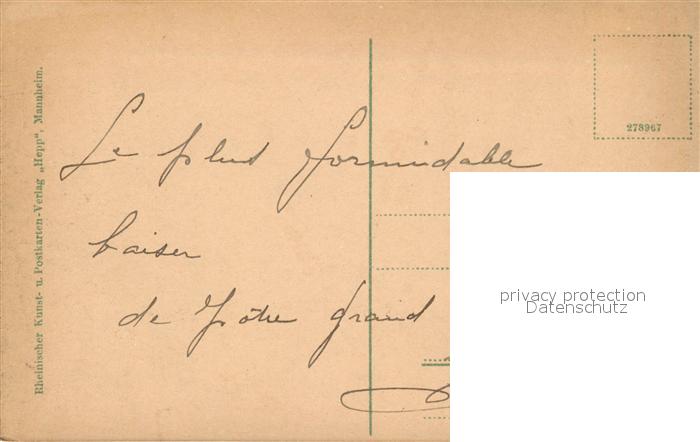 Rheinischer Kunst- u. Postkarten-Verlag „Hepp“, Mannheim.
278967
Le plus formidable
baiser
de Vôtre grand
privacy protection
Datenschutz